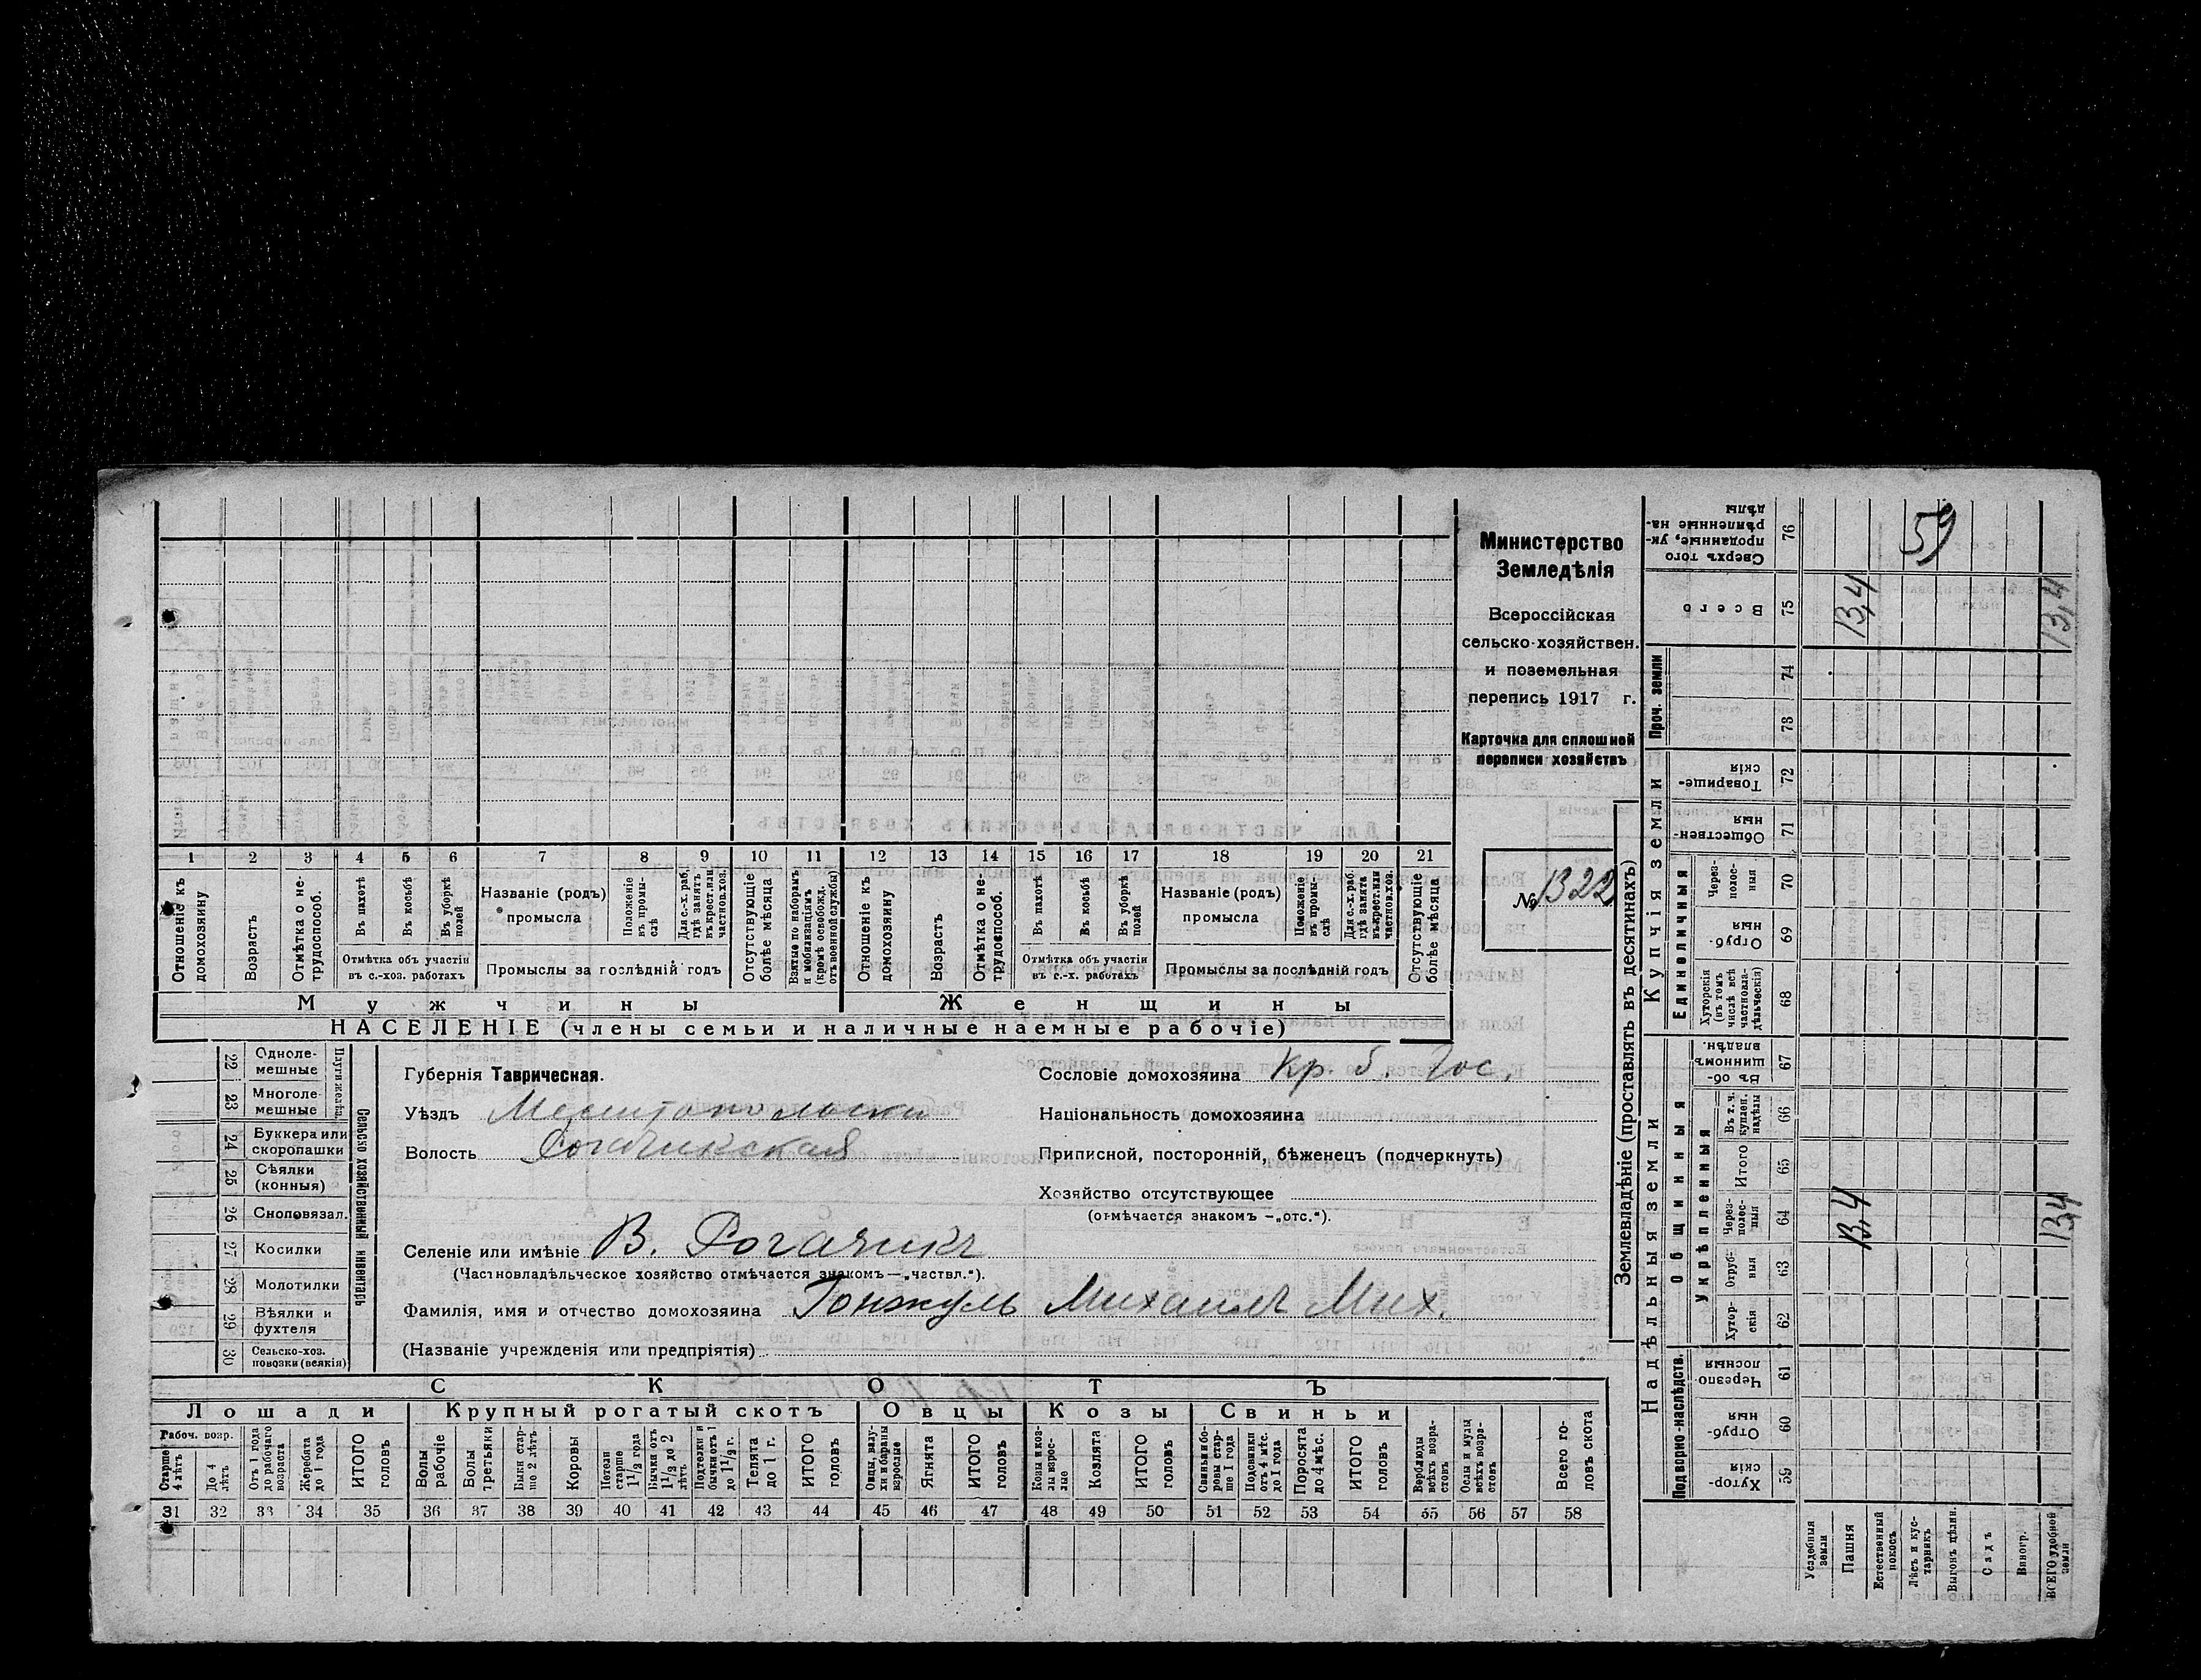 Министерство
Земледѣлія
Всероссійская
сельско-хозяйствен.
и поземельная
перепись 1917 г.
Карточка для сплошной
переписи хозяйствъ
№ 1322
1 2 3 4 5 6 7 8 9 10 11 12 13 14 15 16 17 18 19 20 21
Отношеніе къ домохозяину
Возрастъ
Отмѣтка о не-трудоспособ.
Въ пахотѣ
Въ косьбѣ
Въ уборкѣ полей
Отмѣтка объ участіи
въ с.-хоз. работахъ
Названіе (родъ)
промысла
Положеніе въ промы-слѣ
Для с.-х. раб. гдѣ занятъ въ крест. или частнов. хоз.
Промыслы за послѣдній годъ
Отсутствующіе болѣе мѣсяца
Взятые по наборамъ и мобилизаціямъ (кромѣ освобожд. отъ военной службы)
Отношеніе къ домохозяину
Возрастъ
Отмѣтка о не-трудоспособ.
Въ пахотѣ
Въ косьбѣ
Въ уборкѣ полей
Отмѣтка объ участіи
въ с.-х. работахъ
Названіе (родъ)
промысла
Положеніе въ промы-слѣ
Для с.-х. раб. гдѣ занята въ крест. или частнов. хоз.
Промыслы за послѣдній годъ
Отсутствующіе болѣе мѣсяца
Мужчины Женщины
НАСЕЛЕНІЕ (члены семьи и наличные наемные рабочіе)
Сельско хозяйственный инвентарь
22 Одноле-мешные
23 Многоле-мешные
24 Буккера или скоропашки
25 Сѣялки (конныя)
26 Сноповязал.
27 Косилки
28 Молотилки
29 Вѣялки и фухтеля
30 Сельско-хоз. повозки (всякія)
Губернія Таврическая.
Уѣздъ Мелитопольскій
Волость Рогачикская
Селеніе или имѣніе В. Рогачикъ
(Частновладѣльческое хозяйство отмѣчается знакомъ—„частвл.“).
Фамилія, имя и отчество домохозяина Гонжуль Михаилъ Мих.
(Названіе учрежденія или предпріятія)
Сословіе домохозяина Кр. б. Гос.
Національность домохозяина
Приписной, посторонній, бѣженецъ (подчеркнуть)
Хозяйство отсутствующее
(отмѣчается знакомъ —„отс.“).
СКОТЪ
Лошади Крупный рогатый скотъ Овцы Козы Свиньи
Рабоч. возр.
Старше 4 лѣтъ
До 4 лѣтъ
Отъ 1 года до рабочаго возраста
Жеребята до 1 года
ИТОГО головъ
Волы рабочіе
Волы третьяки
Быки стар-ше 2 лѣтъ
Коровы
Нетели старше 1½ года
Бычки отъ 1½ до 2 лѣтъ
Подтелки и бычки отъ 1 до 1½ г.
Телята до 1 г.
ИТОГО головъ
Овцы, валу-хи и бараны взрослые
Ягнята
ИТОГО головъ
Козы и коз-лы взрос-лые
Козлята
ИТОГО головъ
Свиньи и бо-ровы стар-ше 1 года
Подсвинки отъ 4 мѣс. до 1 года
Поросята до 4 мѣс.
ИТОГО головъ
Верблюды всѣхъ возра-стовъ
Ослы и мулы всѣхъ возра-стовъ
Всего го-ловъ скота
31 32 33 34 35 36 37 38 39 40 41 42 43 44 45 46 47 48 49 50 51 52 53 54 55 56 57 58
Землевладѣніе (проставлять въ десятинахъ)
Надѣльныя земли
Купчія земли
Проч. земли
Подворно-наслѣдств.
Общинныя
Укрѣпленныя
Единоличныя
Хутор-скія 59
Отруб-ныя 60
Черезпо-лосныя 61
Хутор-скія 62
Отруб-ныя 63
Через-полос-ныя 64
Итого 65
Въ т. ч. куплен. надѣлы 66
Въ об-щинномъ владѣн. 67
Хуторскія (въ томъ числѣ всѣ частновла-дѣльческія) 68
Отруб-ныя 69
Через-полос-ныя 70
Обществен-ныя 71
Товарище-скія 72
73
74
Всего 75
Сверхъ того проданные, ук-рѣпленные на-дѣлы 76
59
13,4 13,4
13,4 13,4
Усадебныя земли
Пашня
Естественный покосъ
Лѣсъ и кус-тарникъ
Выгонъ цѣлин.
Садъ
Виногр.
ВСЕГО удобной земли